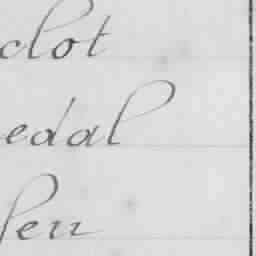 clot
edal
len